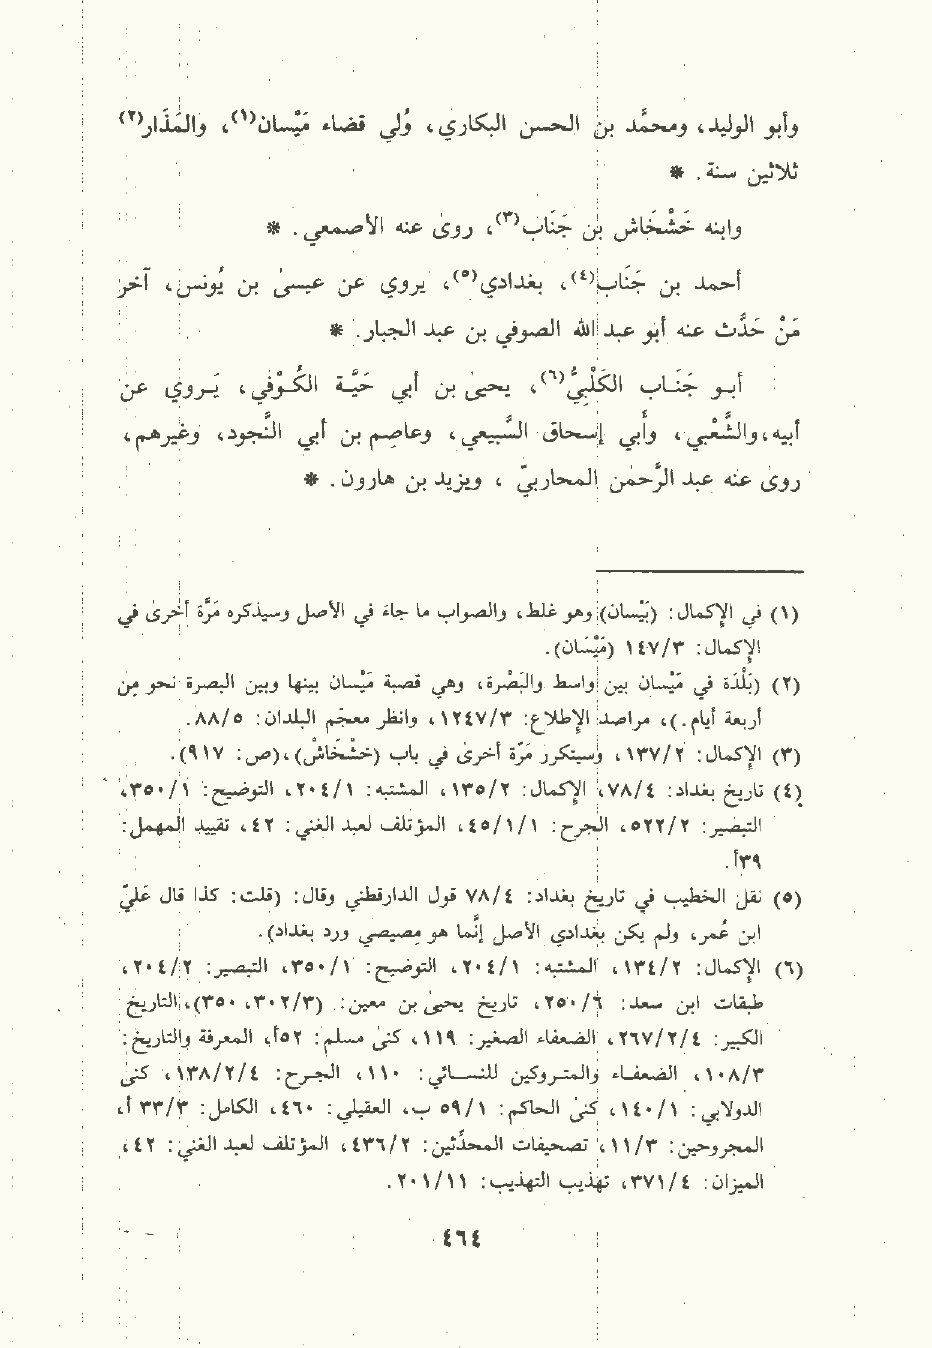 وأبو الوليد، ومحمَّد بن الحسن البكاري، وُلي قضاء مَيْسان(١)، والمَذَار(٢)
ثلاثين سنة. *
وابنه خَشْخَاش بن جَنَاب(٣)، روىٰ عنه الأصمعي. *
أحمد بن جَنَاب(٤)، بغدادي(٥)، يروي عن عيسىٰ بن يُونس، آخر
مَنْ حَدَّث عنه أبو عبد الله الصوفي بن عبد الجبار. *
أبـو جَنَـاب الكَلْبِيُّ(٦)، يحيىٰ بن أبي حَيَّـة الكُـوْفي، يَـروي عن
أبيه، والشَّعْبي، وأبي إسحاق السَّبيعي، وعاصِم بن أبي النَّجود، وغيرهم،
روىٰ عنه عبد الرَّحمٰن المحاربيّ، ويزيد بن هارون. *
(١) في الإكمال: (بَيْسان) وهو غلط، والصواب ما جاء في الأصل وسيذكره مَرَّة أخرىٰ في
الإكمال: ١٤٧/٣ (مَيْسَان).
(٢) (بَلْدَة في مَيْسان بين واسط والبَصْرة، وهي قصبة مَيْسان بينها وبين البصرة نحو مِن
أربعة أيام.)، مراصد الإطلاع: ١٢٤٧/٣، وانظر معجم البلدان: ٨٨/٥.
(٣) الإكمال: ١٣٧/٢، وستكرر مَرّة أخرىٰ في باب (خَشْخَاش)، (ص: ٩١٧).
(٤) تاريخ بغداد: ٧٨/٤، الإكمال: ١٣٥/٢، المشتبه: ٢٠٤/١، التوضيح: ٣٥٠/١،
التبصير: ٥٢٢/٢، الجرح: ٤٥/١/١، المؤتلف لعبد الغني: ٤٢، تقييد المهمل:
٣٩أ.
(٥) نقل الخطيب في تاريخ بغداد: ٧٨/٤ قول الدارقطني وقال: (قلت: كذا قال عَليّ
ابن عُمر، ولم يكن بغدادي الأصل إنَّما هو مصيصي ورد بغداد).
(٦) الإكمال: ١٣٤/٢، المشتبه: ٢٠٤/١، التوضيح: ٣٥٠/١، التبصير: ٢٠٤/٢،
طبقات ابن سعد: ٢٥٠/٦، تاريخ يحيىٰ بن معين: (٣٠٢/٣، ٣٥٠)، التاريخ
الكبير: ٢٦٧/٢/٤، الضعفاء الصغير: ١١٩، كنىٰ مسلم: ٥٢أ، المعرفة والتاريخ:
١٠٨/٣، الضعفـاء والمتـروكين للنسـائي: ١١٠، الجـرح: ١٣٨/٢/٤، كنىٰ
الدولابي: ١٤٠/١، كنىٰ الحاكم: ٥٩/١ ب، العقيلي: ٤٦٠، الكامل: ٣٣/٣ أ،
المجروحين: ١١/٣، تصحيفات المحدِّثين: ٤٣٦/٢، المؤتلف لعبد الغني: ٤٢،
الميزان: ٣٧١/٤، تهذيب التهذيب: ٢٠١/١١.
٤٦٤